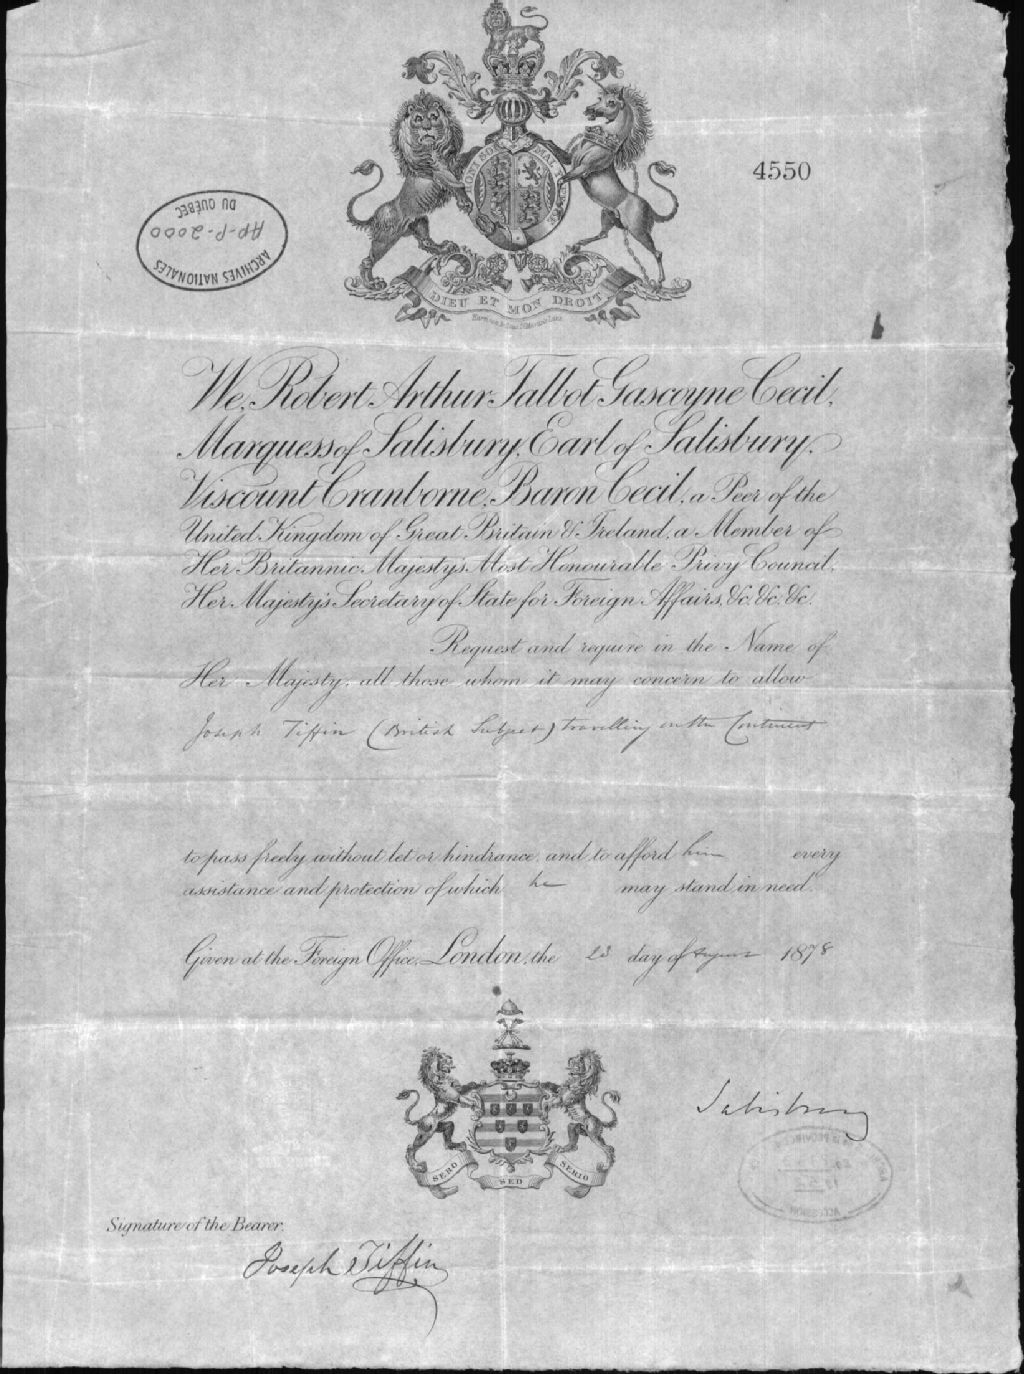 4550
HONI SOIT QUI MAL Y PENSE
DIEU ET MON DROIT
ARCHIVES NATIONALES
AP-P-2000
DU QUÉBEC
We, Robert Arthur Talbot Gascoyne Cecil,
Marquess of Salisbury, Earl of Salisbury,
Viscount Cranborne, Baron Cecil, a Peer of the
United Kingdom of Great Britain & Ireland, a Member of
Her Britannic Majesty's Most Honourable Privy Council,
Her Majesty's Secretary of State for Foreign Affairs, &c. &c. &c.
Request and require in the Name of
Her Majesty, all those whom it may concern to allow
Joseph Tiffin (British Subject) travelling on the Continent
to pass freely without let or hindrance, and to afford him every
assistance and protection of which he may stand in need.
Given at the Foreign Office, London, the 23 day of August 1878
SERO SED SERIO
Salisbury
Signature of the Bearer.
Joseph Tiffin